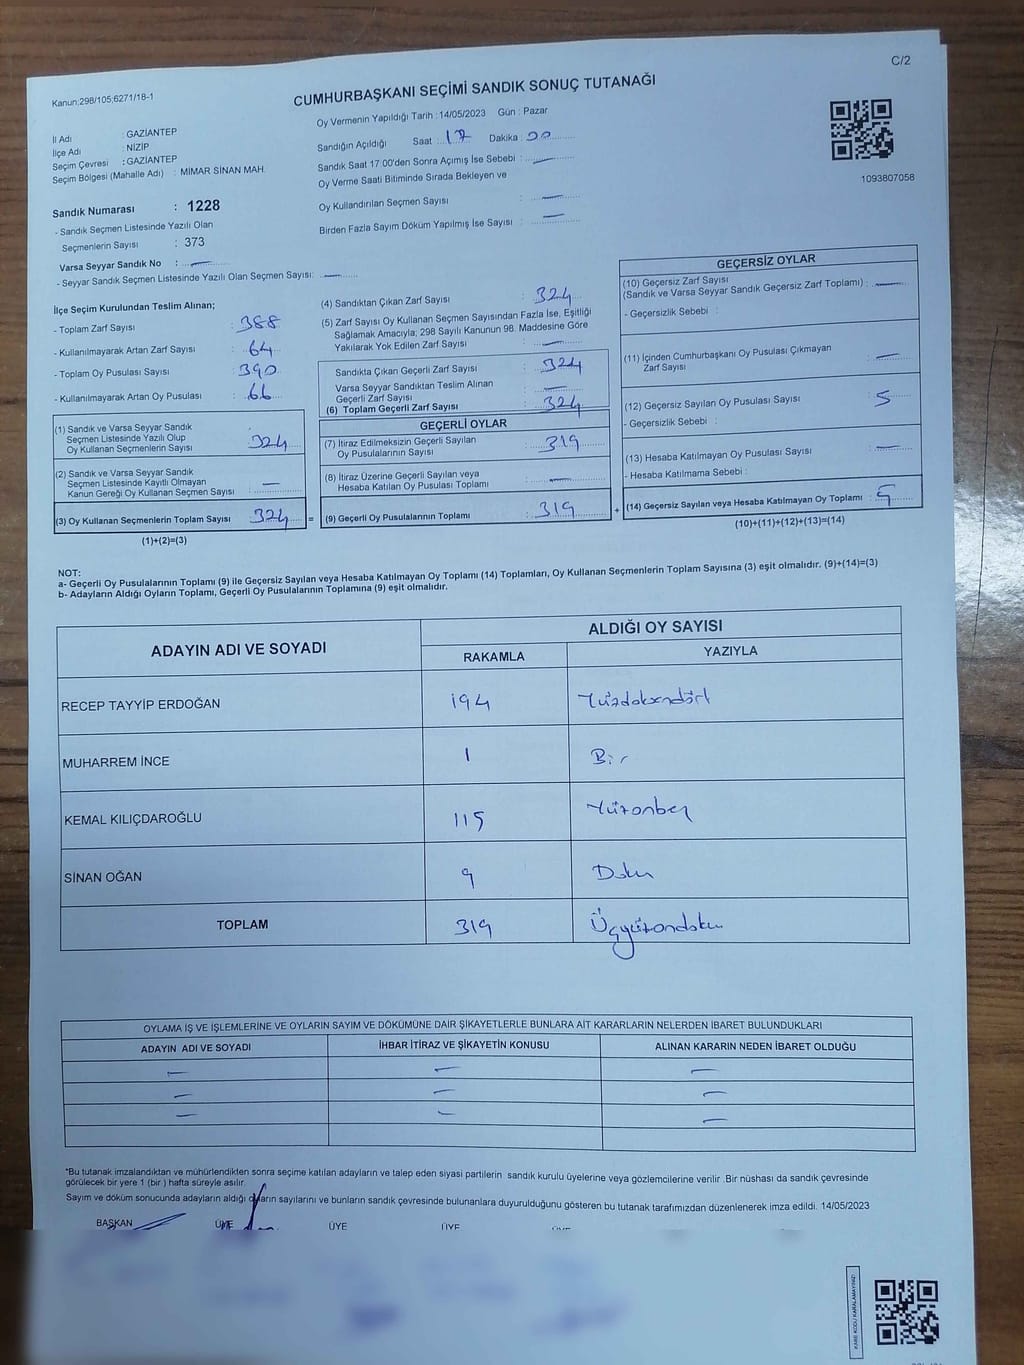 C/2
Kanun;298/105;6271/18-1
CUMHURBAŞKANI SEÇİMİ SANDIK SONUÇ TUTANAĞI
İl Adı : GAZİANTEP
İlçe Adı : NİZİP
Seçim Çevresi : GAZİANTEP
Seçim Bölgesi (Mahalle Adı) : MİMAR SİNAN MAH.
Sandık Numarası : 1228
- Sandık Seçmen Listesinde Yazılı Olan
Seçmenlerin Sayısı : 373
Varsa Seyyar Sandık No : —
- Seyyar Sandık Seçmen Listesinde Yazılı Olan Seçmen Sayısı: —
Oy Vermenin Yapıldığı Tarih :14/05/2023 Gün : Pazar
Sandığın Açıldığı Saat 17 Dakika : 00
Sandık Saat 17:00'den Sonra Açımış İse Sebebi : —
Oy Verme Saati Bitiminde Sırada Bekleyen ve
Oy Kullandırılan Seçmen Sayısı : —
Birden Fazla Sayım Döküm Yapılmış İse Sayısı : —
1093807058
İlçe Seçim Kurulundan Teslim Alınan;
- Toplam Zarf Sayısı : 388
- Kullanılmayarak Artan Zarf Sayısı : 64
- Toplam Oy Pusulası Sayısı : 390
- Kullanılmayarak Artan Oy Pusulası : 66
(1) Sandık ve Varsa Seyyar Sandık
Seçmen Listesinde Yazılı Olup
Oy Kullanan Seçmenlerin Sayısı : 324
(2) Sandık ve Varsa Seyyar Sandık
Seçmen Listesinde Kayıtlı Olmayan
Kanun Gereği Oy Kullanan Seçmen Sayısı : —
(3) Oy Kullanan Seçmenlerin Toplam Sayısı : 324 =
(1)+(2)=(3)
(4) Sandıktan Çıkan Zarf Sayısı : 324
(5) Zarf Sayısı Oy Kullanan Seçmen Sayısından Fazla İse, Eşitliği
Sağlamak Amacıyla; 298 Sayılı Kanunun 98. Maddesine Göre
Yakılarak Yok Edilen Zarf Sayısı : —
Sandıkta Çıkan Geçerli Zarf Sayısı : 324
Varsa Seyyar Sandıktan Teslim Alınan
Geçerli Zarf Sayısı : —
(6) Toplam Geçerli Zarf Sayısı : 324
GEÇERLİ OYLAR
(7) İtiraz Edilmeksizin Geçerli Sayılan
Oy Pusulalarının Sayısı : 319
(8) İtiraz Üzerine Geçerli Sayılan veya
Hesaba Katılan Oy Pusulası Toplamı : —
(9) Geçerli Oy Pusulalarının Toplamı : 319 +
GEÇERSİZ OYLAR
(10) Geçersiz Zarf Sayısı
(Sandık ve Varsa Seyyar Sandık Geçersiz Zarf Toplamı) : —
- Geçersizlik Sebebi :
(11) İçinden Cumhurbaşkanı Oy Pusulası Çıkmayan
Zarf Sayısı : —
(12) Geçersiz Sayılan Oy Pusulası Sayısı : 5
- Geçersizlik Sebebi :
(13) Hesaba Katılmayan Oy Pusulası Sayısı : —
- Hesaba Katılmama Sebebi :
(14) Geçersiz Sayılan veya Hesaba Katılmayan Oy Toplamı : 5
(10)+(11)+(12)+(13)=(14)
NOT:
a- Geçerli Oy Pusulalarının Toplamı (9) ile Geçersiz Sayılan veya Hesaba Katılmayan Oy Toplamı (14) Toplamları, Oy Kullanan Seçmenlerin Toplam Sayısına (3) eşit olmalıdır. (9)+(14)=(3)
b- Adayların Aldığı Oyların Toplamı, Geçerli Oy Pusulalarının Toplamına (9) eşit olmalıdır.
ADAYIN ADI VE SOYADI ALDIĞI OY SAYISI
RAKAMLA YAZIYLA
RECEP TAYYİP ERDOĞAN 194 Yüzdoksandört
MUHARREM İNCE 1 Bir
KEMAL KILIÇDAROĞLU 115 Yüzonbeş
SİNAN OĞAN 9 Dokuz
TOPLAM 319 Üçyüzondokuz
OYLAMA İŞ VE İŞLEMLERİNE VE OYLARIN SAYIM VE DÖKÜMÜNE DAİR ŞİKAYETLERLE BUNLARA AİT KARARLARIN NELERDEN İBARET BULUNDUKLARI
ADAYIN ADI VE SOYADI İHBAR İTİRAZ VE ŞİKAYETİN KONUSU ALINAN KARARIN NEDEN İBARET OLDUĞU
— — —
— — —
— — —
*Bu tutanak imzalandıktan ve mühürlendikten sonra seçime katılan adayların ve talep eden siyasi partilerin sandık kurulu üyelerine veya gözlemcilerine verilir. Bir nüshası da sandık çevresinde
görülecek bir yere 1 (bir ) hafta süreyle asılır.
Sayım ve döküm sonucunda adayların aldığı oyların sayılarını ve bunların sandık çevresinde bulunanlara duyurulduğunu gösteren bu tutanak tarafımızdan düzenlenerek imza edildi. 14/05/2023
BAŞKAN ÜYE ÜYE ÜYE
KARE KODU KARALAMAYINIZ!